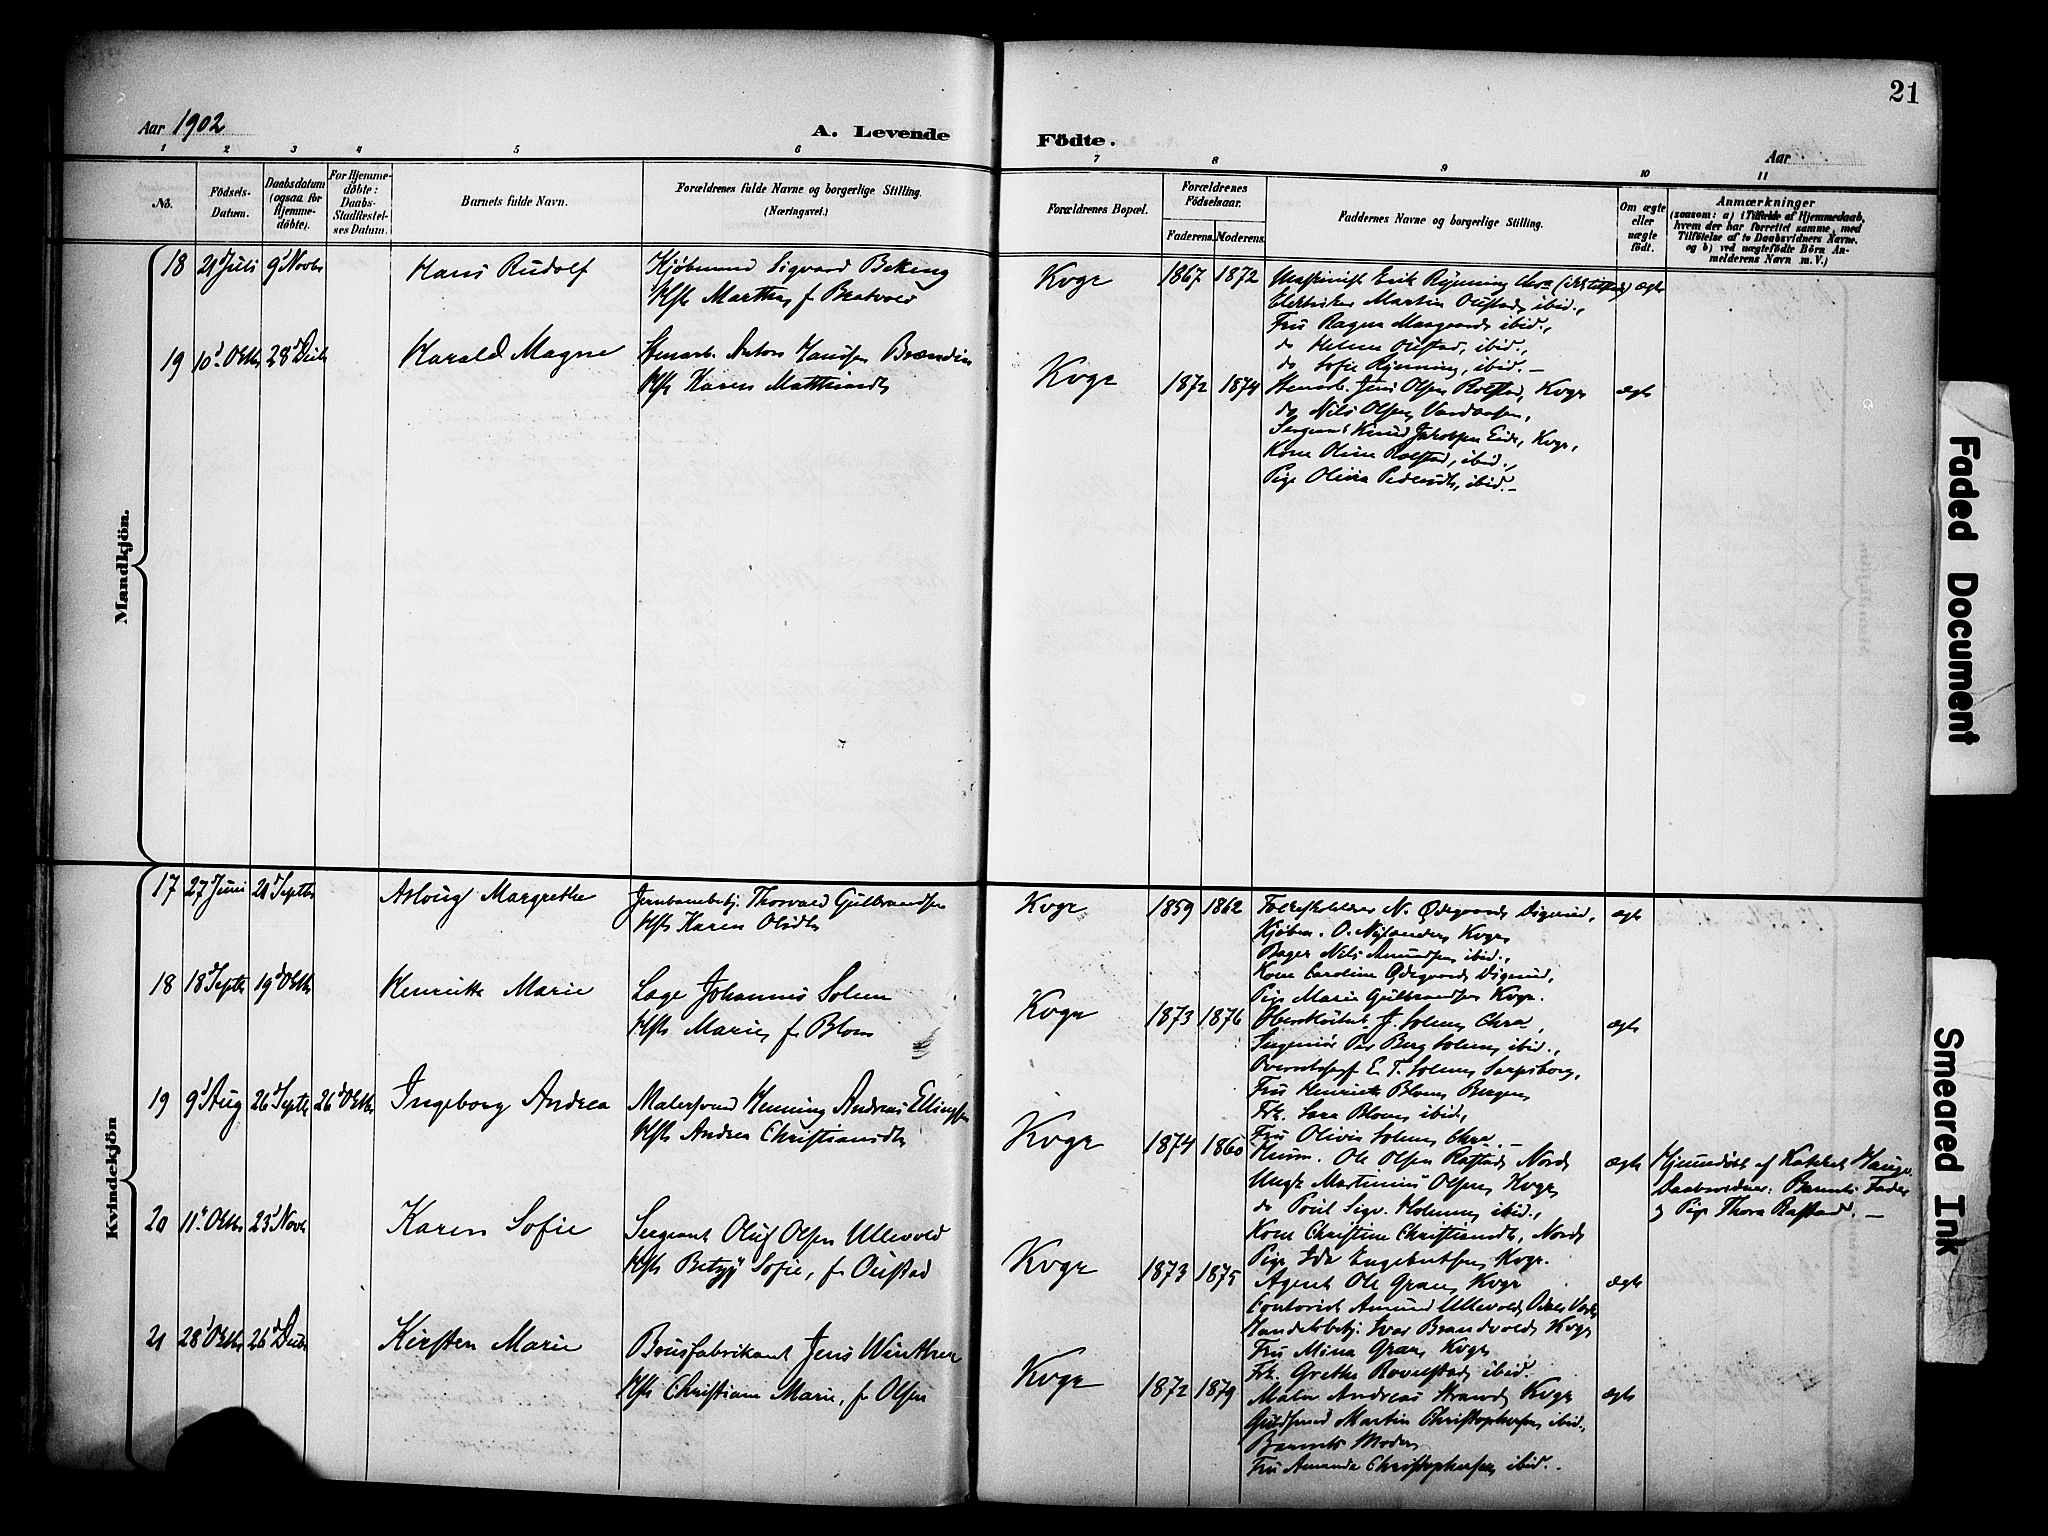 21
Aar 1902
A. Levende
Födte.
Aar
1 2 3 4 5 6 7 8 9 10 11
No.
Födsels-
Datum.
Daabsdatum
(ogsaa for
Hjemme-
döbte).
For Hjemme-
döbte:
Daabs-
Stadfæstel-
ses Datum.
Barnets fulde Navn.
Forældrenes fulde Navne og borgerlige Stilling.
(Næringsvei.)
Forældrenes Bopæl.
Forældrenes
Födselsaar.
Faderens. Moderens.
Faddernes Navne og borgerlige Stilling.
Om ægte
eller
uægte
födt.
Anmærkninger
(saasom: a) i Tilfælde af Hjemmedaab,
hvem der har forrettet samme, med
Tilföielse af to Daabsvidners Navne.
og b) ved uægtefödte Börn An-
melderens Navn m. V.)
Mandkjön.
18 21 Juli 9' Novbr Hans Rudolf Kjøbmand Sigvard Beking
Hst Martha, f. Bratvold
Kvgr 1867 1872 Maskinist Erik Rynning Chra ægte
Elektriker Martin Oustad, ibid.,
Fru Ragna Maagaard, ibid.,
do Helma Oustad, ibid.,
do Sofie Rynning, ibid.-
19 10' Oktbr 28' Decbr Harald Magne Stenarb. Anton Hansen Brændin
Hst Karen Matthiasdtr
Kvgr 1872 1874 Stenarb. Jens Olsen Rolstad, Kvgr ægte
do Nils Olsen, Vardaasen,
Sergeant Knud Jakobsen Eide, Kvgr,
Kone Oline Rolstad, ibid.,
Pige Olivia Pedersdtr, ibid.-
Kvindekjön
17 27' Juni 21' Septbr Aslaug Margrethe Jernbanebetj. Thorvald Gulbrandsen
Hst Karen Olsdtr
Kvgr 1859 1862 N. Ødegaard, Digerud, ægte
Kjøbm. O. Nylander, Kvgr,
Bager Nils Amundsen, ibid.,
Kone Caroline Ødegaard, Digerud,
Pige Marie Gulbrandsen, Kvgr.
18 18' Septbr 19' Oktbr Henriette Marie Læge Johannes Solem
Hst Marie, f. Blom
Kvgr 1873 1876 J. Solem, Chra, ægte
Ingeniør Per Berg Solem, ibid.,
E. T. Solem, Sarpsborg,
Fru Henriette Blom, Bergen,
Frk. Sara Blom, ibid.,
Fru Olivia Solem, Chra.-
19 9' Aug 26' Septbr 26' Oktbr Ingeborg Andrea Malersvend Henning Andreas Ellingsen
Hst Andrea Christiansdtr
Kvgr 1874 1860 Husm. Ole Olsen Rastad, Nord, ægte
Ungk Martinius Olsen, Kvgr,
do Poul Sigv. Holmen, ibid.,
Kone Christine Christiansdtr, Nord,
Pige Ida Engebretsen, Kvgr.
Hjemmedøbt af Katekst Hauge.
Daabsvidner: Barnets Fader
og Pige Thora Rastad. -
20 11' Oktbr 23' Novbr Karen Sofie Sergeant Oluf Olsen Ullevold
Hst Betzy Sofie, f. Oustad
Kvgr 1873 1875 Agent Ole Gran, Kvgr ægte
Contorist Amund Ullevold, Odals Værk
Handelsbetj. Ivar Brandvold, Kvgr
Fru Mina Gran, Kvgr
Frk. Grethe Rovelstad, ibid.
21 28' Oktbr 26' Decbr Kirsten Marie Brusfabrikant Jens Winther
Hst Christiane Marie, f. Olsen
Kvgr 1872 1879 Maler Andreas Strand, Kvgr ægte
Guldsmed Martin Christophersen, ibid.,
Barnets Moder
Fru Amanda Christophersen, ibid.-
Faded Document
Smeared Ink